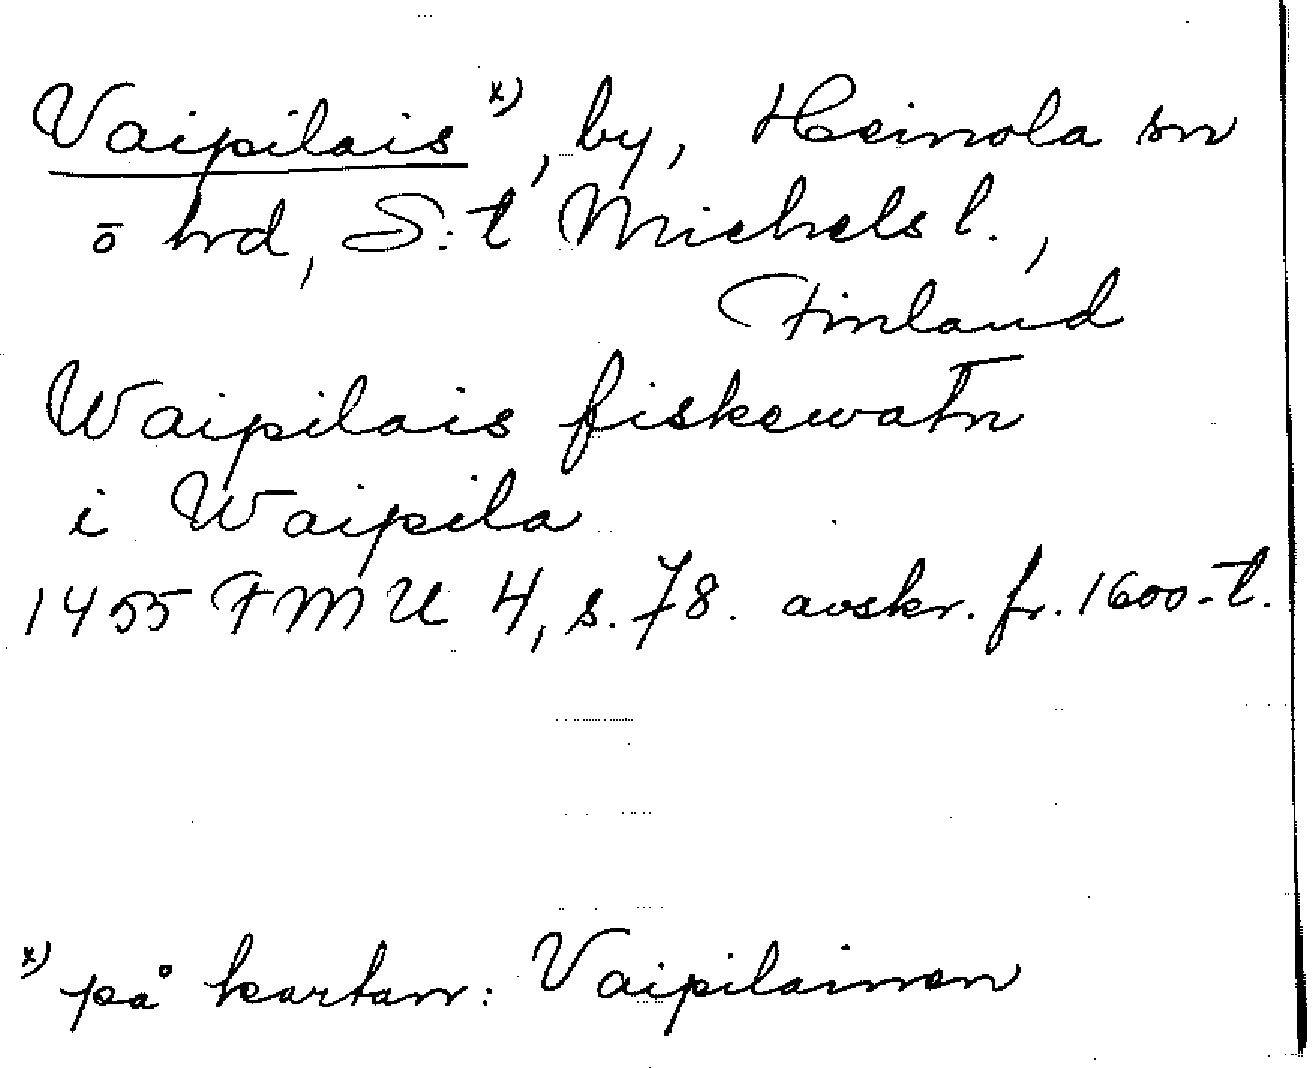 Vaipilais x), by, Heinola sn
o hrd, S:t Michels l.,
Finland
Waipilais fiskewatn
i Waipila
1455 FMU 4, s. 78. avskr. fr. 1600-t.
x) på kartan: Vaipilainen